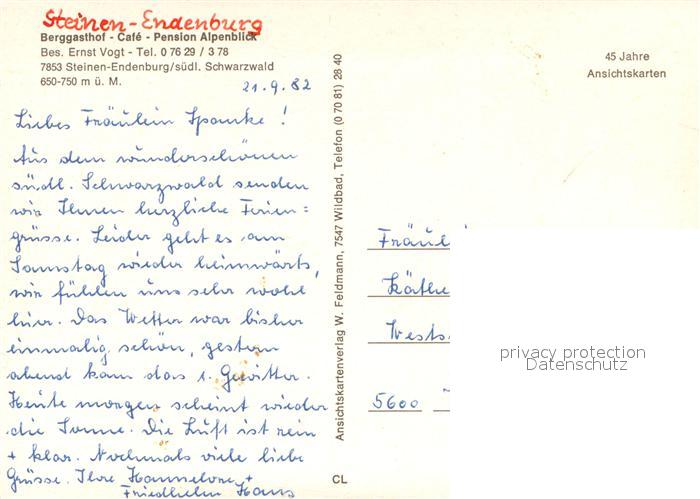 Steinen-Endenburg
Berggasthof - Café - Pension Alpenblick
Bes. Ernst Vogt - Tel. 0 76 29 / 3 78
7853 Steinen-Endenburg/südl. Schwarzwald
650-750 m ü. M.
21.9.82
Liebes Fräulein Spanke!
Aus dem wunderschönen
südl. Schwarzwald senden
wir Ihnen herzliche Ferien=
grüsse. Leider geht es am
Samstag wieder heimwärts,
wir fühlen uns sehr wohl
hier. Das Wetter war bisher
einmalig schön, gestern
abend kam das 1. Gewitter.
Heute morgen scheint wieder
die Sonne. Die Luft ist rein
+ klar. Nochmals viele liebe
Grüsse. Ihre Hannelore +
Friedhelm Hans
Ansichtskartenverlag W. Feldmann, 7547 Wildbad, Telefon (0 70 81) 28 40
CL
45 Jahre
Ansichtskarten
Fräul
Käthe
Wests
5600
privacy protection
Datenschutz